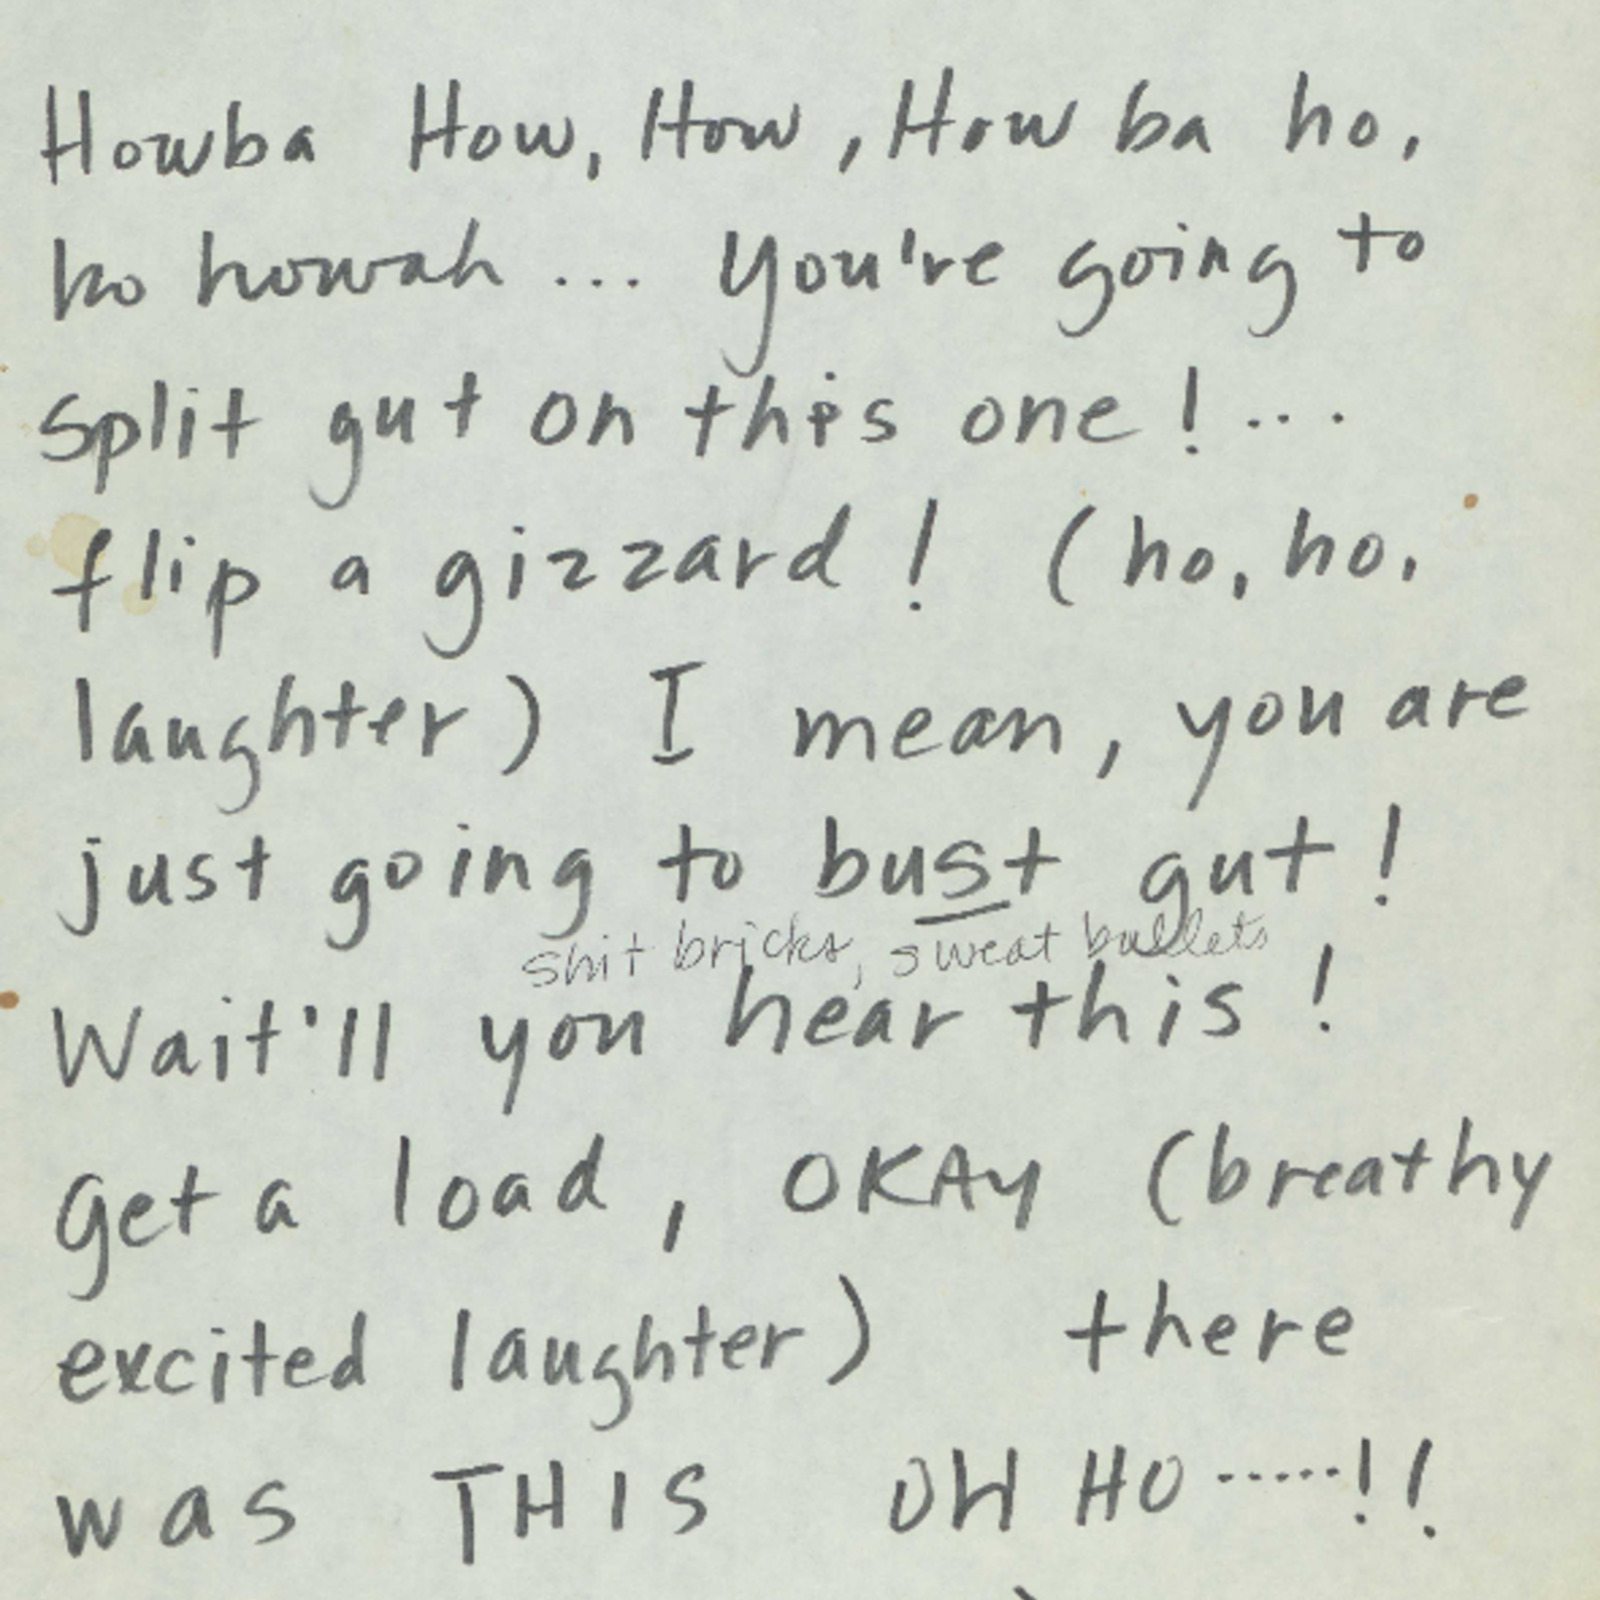 Howba How, How, How ba ho,
ho howah ... You're going to
split gut on this one! ...
flip a gizzard! (ho, ho,
laughter) I mean, you are
just going to bust gut!
shit bricks, sweat bullets
Wait'll you hear this!
Get a load, OKAy (breathy
excited laughter) there
was THIS OH HO .....!!